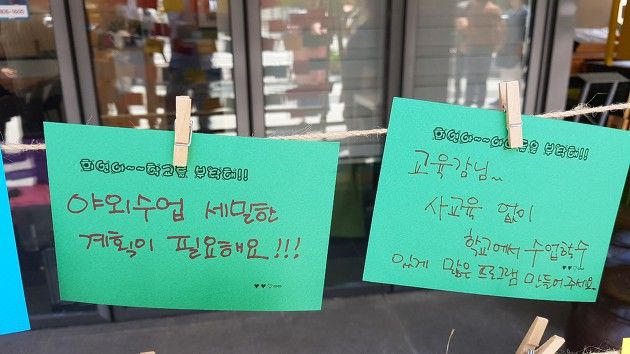 806-1600
희연아~~학교를 부탁해!!
야외수업 세밀한
계획이 필요해요!!!
부탁해!!
교육감님~
사교육 없이
학교에서 수업할 수
있게 많은 프로그램 만들어주세요